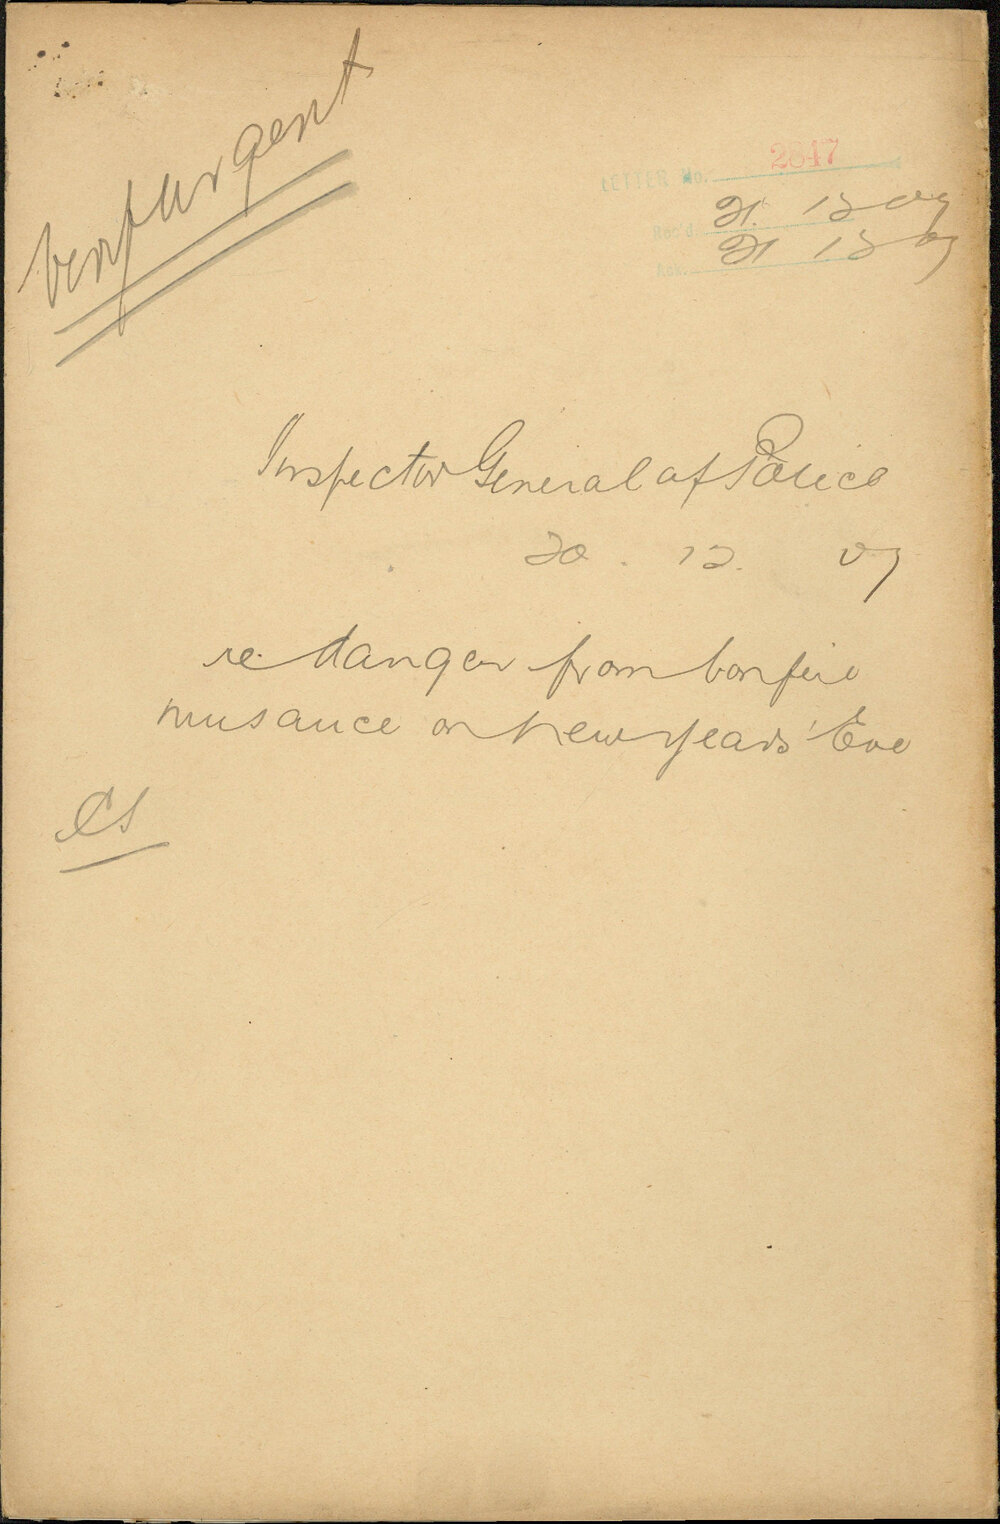 Very urgent
LETTER No. 2847
Rec'd. 21. 12 07
Ack. 21 12 07
Inspector General of Police
20. 12. 07
re danger from bonfire
nuisance on New Years' Eve
CS